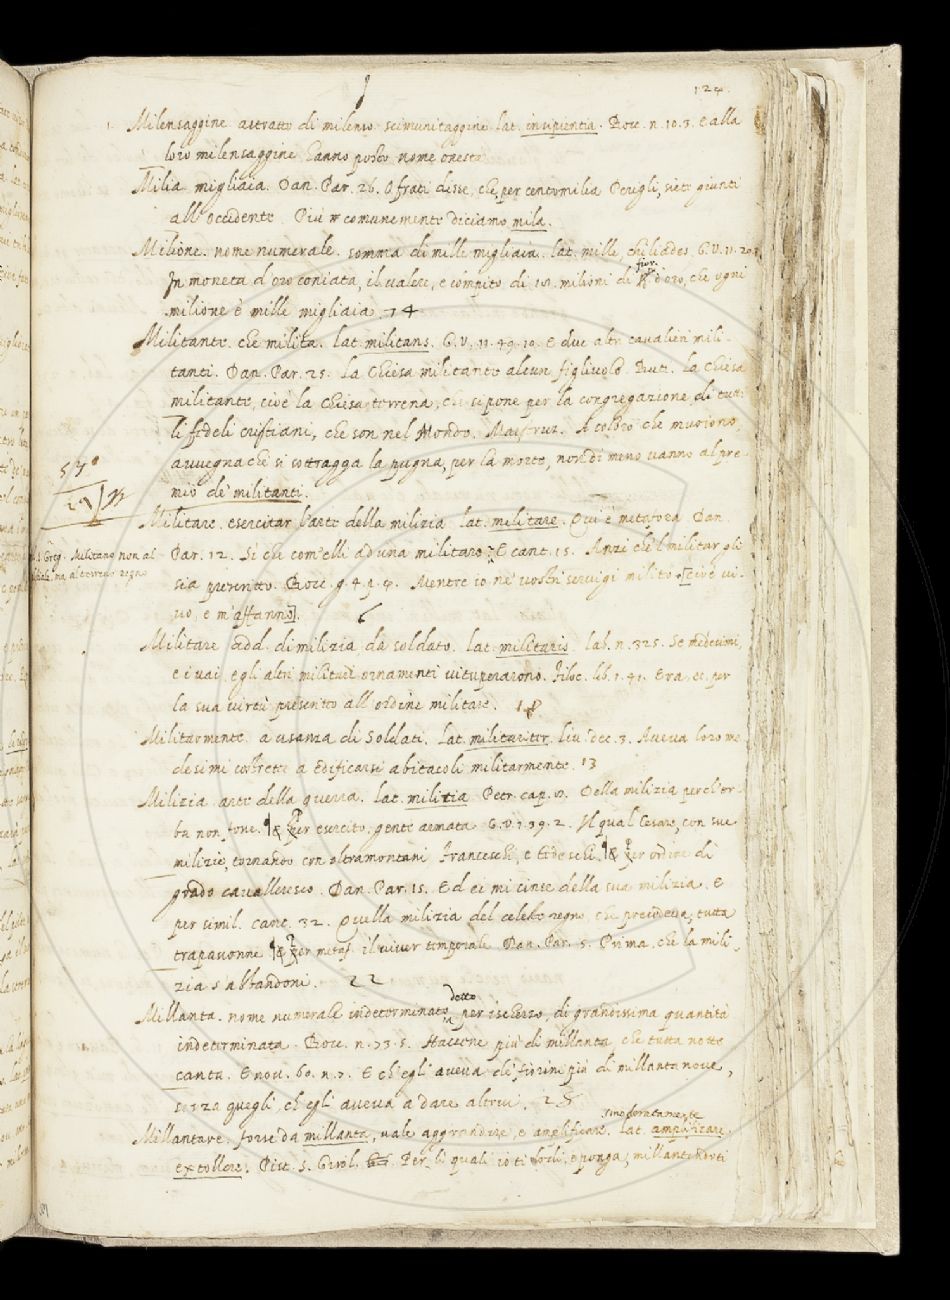 124.
Milensaggine astratto di milenso. scimunitaggine. lat. insipientia. Bocc. n. 10. 3. E alla
loro milensaggine hanno posto nome onestà
Milia. migliaia. Dan. Par. 26. O frati disse, che, per centomilia Perigli, siete giunti
all'occidente. Più comunemente diciamo mila.
Milione. nome numerale. somma di mille migliaia. lat. mille chiliades. G. V. 11. 20.
In moneta d'oro coniata, il valere, e compito di 18. milioni di fior. d'oro, che ogni
milione è mille migliaia. 14
Militante. che milita. lat. militans. G. V. 11. 49. 10. E due altri cavalieri mili-
tanti. Dan. Par. 25. La Chiesa militante alcun figliuolo. But. La Chiesa
militante, cioè la Chiesa terrena, che si pone per la congregazione di tutti
li fedeli cristiani, che son nel Mondo. Maestruz. A coloro che muoiono,
avvegna che si sottragga la pugna, per la morte, nondimeno vanno al pre-
mio de' militanti.
57
29
Militare. esercitar l'arte della milizia. lat. militare. Qui è metafora Dan.
S. Greg. Militano non al
ma al terreno regno
Par. 12. Sì che com'elli ad una militaro. E cant. 15. Anzi che 'l militar gli
sia prescritto. Bocc. g. 4. p. 4. Mentre io ne' vostri servigi milito [cioè vi-
vo, e m'affanno]. 6
Militare add. di milizia, da soldato. lat. militaris. lab. n. 325. Se medesimi,
e i vai, e gli altri militari ornamenti vituperarono. Filoc. lib. 1. 41. Era ec. per
la sua virtù prescritto all'ordine militare. 18
Militarmente. a usanza di Soldati. lat. militariter. liv. dec. 3. Aveva loro me-
desimi costretti a edificarsi abitacoli militarmente. 13
Milizia. arte della guerra. lat. militia. Petr. cap. 8. Della milizia perch'er-
ba non fone. ¶ & Per esercito. gente armata G. V. 1. 39. 2. Il qual Cesare, con sue
milizie, tornando con oltramontani Franceschi, e tedeschi. ¶ & Per ordine di
grado cavalleresco. Dan. Par. 15. Ed ei mi cinse della sua milizia. E
per simil. cant. 32. Quella milizia del celeste regno, che precedeva, tutta
trapavonne ¶ & Per metaf. il viver temporale Dan. Par. 5. Prima, che la mili-
zia s'abbandoni. 22
Millanta. nome numerale indeterminato, detto per ischerzo, di grandissima quantità
indeterminata. Bocc. n. 73. 5. Haccene più di millanta che tutta notte
canta. E nov. 60. n. 7. E ch'egli aveva de' fiorini più di millanta nove,
senza quegli, ch'egli aveva a dare altrui. 25
Millantare. forse da millanta, vale aggrandire, e amplificare smoderatamente. lat. amplificare.
extollere. Pist. S. Girol. Per li quali io ti lodi, e ponga, millantandoti